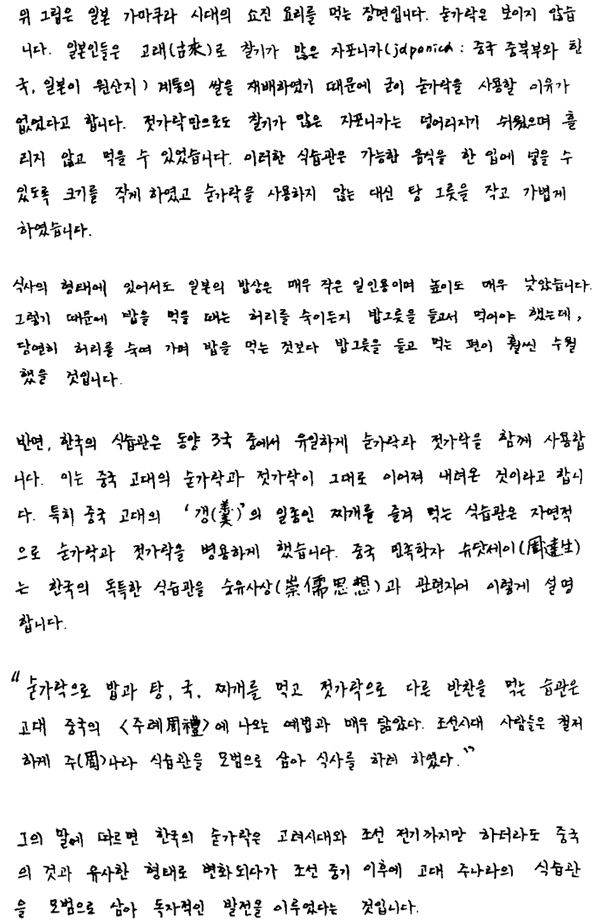 위 그림은 일본 가마쿠라 시대의 쇼진 요리를 먹는 장면입니다. 숟가락은 보이지 않습
니다. 일본인들은 고래(古來)로 찰기가 많은 자포니카(japonica : 중국 중북부와 한
국, 일본이 원산지) 계통의 쌀을 재배하였기 때문에 굳이 숟가락을 사용할 이유가
없었다고 합니다. 젓가락만으로도 찰기가 많은 자포니카는 덩어리지기 쉬웠으며 흘
리지 않고 먹을 수 있었습니다. 이러한 식습관은 가능한 음식을 한 입에 넣을 수
있도록 크기를 작게 하였고 숟가락을 사용하지 않는 대신 탕 그릇을 작고 가볍게
하였습니다.
식사의 형태에 있어서도 일본의 밥상은 매우 작은 일인용이며 높이도 매우 낮았습니다.
그렇기 때문에 밥을 먹을 때는 허리를 숙이든지 밥그릇을 들고서 먹어야 했는데,
당연히 허리를 숙여 가며 밥을 먹는 것보다 밥그릇을 들고 먹는 편이 훨씬 수월
했을 것입니다.
반면, 한국의 식습관은 동양 3국 중에서 유일하게 숟가락과 젓가락을 함께 사용합
니다. 이는 중국 고대의 숟가락과 젓가락이 그대로 이어져 내려온 것이라고 합니
다. 특히 중국 고대의 '갱(羹)'의 일종인 찌개를 즐겨 먹는 식습관은 자연적
으로 숟가락과 젓가락을 병용하게 했습니다. 중국 민족학자 슈탓세이(周達生)
는 한국의 독특한 식습관을 숭유사상(崇儒思想)과 관련지어 이렇게 설명
합니다.
"숟가락으로 밥과 탕, 국, 찌개를 먹고 젓가락으로 다른 반찬을 먹는 습관은
고대 중국의 〈주례周禮〉에 나오는 예법과 매우 닮았다. 조선시대 사람들은 철저
하게 주(周)나라 식습관을 모범으로 삼아 식사를 하려 하였다."
그의 말에 따르면 한국의 숟가락은 고려시대와 조선 전기까지만 하더라도 중국
의 것과 유사한 형태로 변화되다가 조선 중기 이후에 고대 주나라의 식습관
을 모범으로 삼아 독자적인 발전을 이루었다는 것입니다.